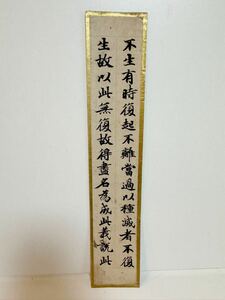 不生有時復起不離當過以種滅者不復
生故以此無復故得盡名為成此義說此